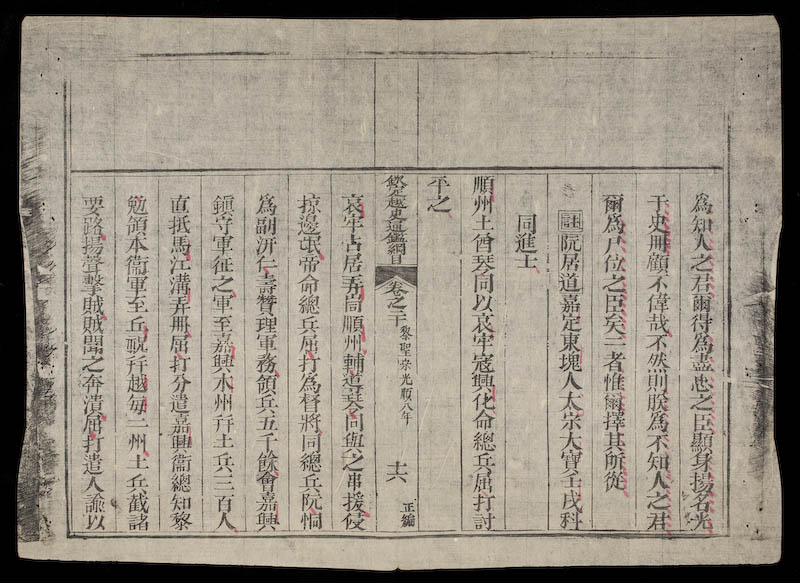 為知人之君爾得為盡忠之臣顯身揚名光
于史冊顧不偉哉不然則朕為不知人之君
爾為尸位之臣矣二者惟爾擇其所從
註阮居道嘉定東塊人太宗大寶壬戌科
同進士
順州土酋琴同以哀牢寇興化命總兵屈打討
平之
欽定越史通鑑綱目 卷之二十 黎聖宗光順八年 十六 正編
哀牢占居弄峝順州輔導琴同與之串援侵
掠邊氓帝命總兵屈打為督將同總兵阮恫
為副汧仁壽贊理軍務領兵五千餘會嘉興
鎮守軍征之軍至嘉興木州幷土兵三百人
直抵馬江溝弄冊屈打分遣嘉興衞總知黎
勉領本衞軍至丘幷越每二州土兵截諸
要路揚聲擊賊賊聞之奔潰屈打遣人諭以